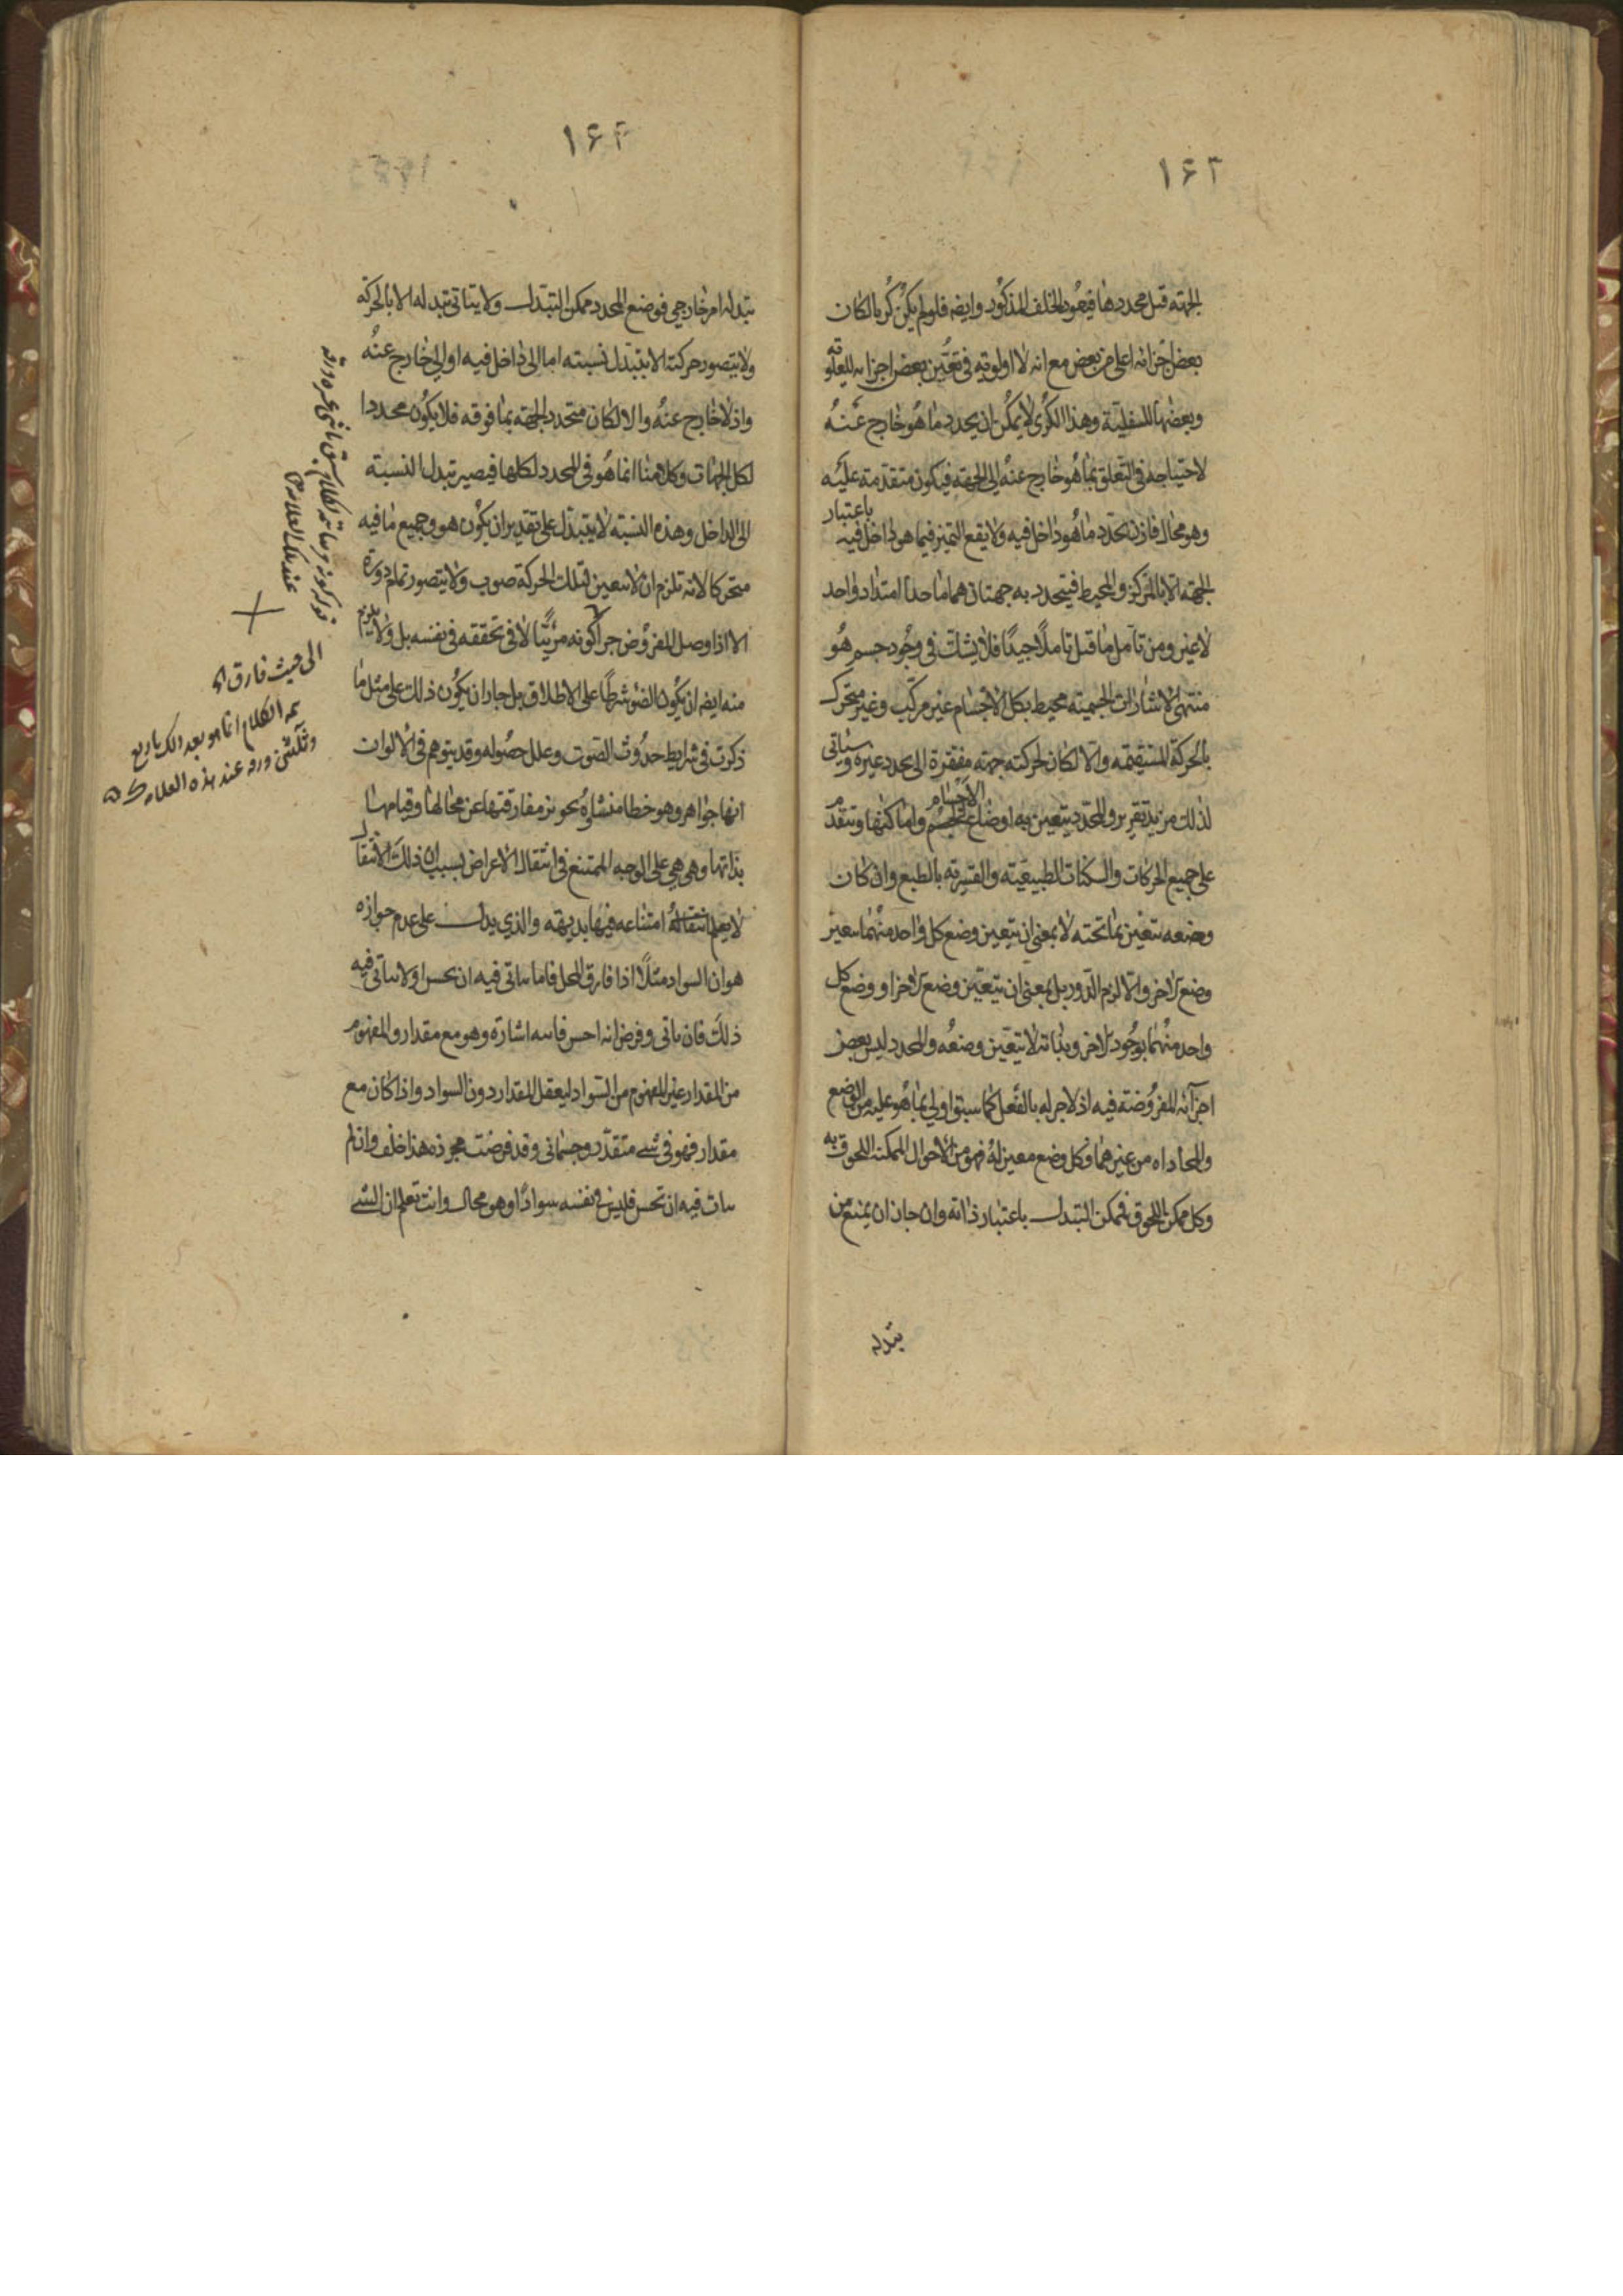 ١٤٣
الجهة قبل محددها فيعود الخلف المذكور وايضه فلو لم يكن كريا لكان
بعض اجزائه اعلى من بعض مع انه لا اولوية في تعين بعض اجزائه للعلوية
وبعضها للسفلية وهذا الكرى لا يمكن ان يحدد ما هو خارج عنه
لاحتياجه في التعلق بما هو خارج عنه الى الجهة فيكون متقدمة عليه
وهو محال فاذن تحدد ما هو داخل فيه ولا يقع التميز فيما هو داخل فيه باعتبار
الجهة الا بالمركز والمحيط فيتحدد به جهتان هما ماحدا امتداد واحد
لا غير ومن تامل ما قبل تاملا جيدا فلا يشك في وجود جسم هو
منتهى الاشارات الجسمية محيط بكل الاجسام غير مركب وغير متحرك
بالحركة المستقيمة والا لكان لحركته جهة مفتقرة الى محدد غيره وسياتي
لذلك مزيد تقرير والمحدد يتعين به اوضاع الاجسام واماكنها وتتقدم
على جميع الحركات والسكنات الطبيعية والقسرية بالطبع وان كان
وضعه تتعين بما تحته لا بمعنى ان يتعين وضع كل واحد منهما بتعين
وضع الاخر والا لزم الدور بل بمعنى ان يتعين وضع الاخر او وضع كل
واحد منهما بوجود الاخر وبذاته لا يتعين وضعه والمحدد ليس بعض
اجزائه المفروضة فيه اذ لا جز له بالفعل كما سبق اولى بما هو عليه من الوضع
والمحاداه من غيرهما وكل وضع معين له فهو من الاحوال الممكنة اللحوق به
وكل ممكن اللحوق فممكن التبدل باعتبار ذاته وان جاز ان يمنع من
تبدله
١٤٤
تبدله امر خارجي فوضع المحدد ممكن التبدل ولا يتاتى تبدله الا بالحركة
ولا يتصور حركته الا بتبدل نسبته اما الى داخل فيه او الى خارج عنه
واذ لا خارج عنه والا لكان متحدد الجهة بما فوقه فلا يكون محددا
لكل الجهات وكلامنا انما هو في المحدد لكلها فيصير تبدل النسبة
الى الداخل وهذه النسبة لا يتبدل على تقدير ان يكون هو وجميع ما فيه
متحركا لانه تلزم ان لا تتعين لتلك الحركة صوب ولا يتصور تمام دورة
الا اذا وصل المفروض جزا كونه مرئيا لا في تحققه في نفسه بل ولا يلزم
منه ايضه ان يكون الضو شرطا على الاطلاق بل جاز ان يكون ذلك على مثل ما
ذكرت في شرايط حدوث الصوت وعلل حصوله وقد يتوهم في الالوان
انها جواهر وهو خطا منشاوه تجويز مفارقتها عن محالها وقيامها
بذاتها وهي هي على الوجه الممتنع في انتقال الاعراض بسبب ان ذلك الانتقال
لا يعلم امتناعه فيها بديهة والذي يدل على عدم جوازه
هو ان السواد مثلا اذا فارق المحل فاما يتاتى فيه ان يحس او لا يتاتى فيه
ذلك فان تاتى وفرض انه احس فاليه اشارة وهو مع مقدار والمفهوم
من المقدار غير المفهوم من السواد ليعقل المقدار دون السواد واذا كان مع
مقدار فهو في شىء متقدر وجسماني وقد فرضت مجرده هذا خلف وان لم
يتات فيه ان تحس فليس في نفسه سوادا وهو محال وانت تعلم ان الشىء
الى حيث فارق
الكلام انما هو بعد ذلك باربع
وثلثين ورقه عند هذه العلامة